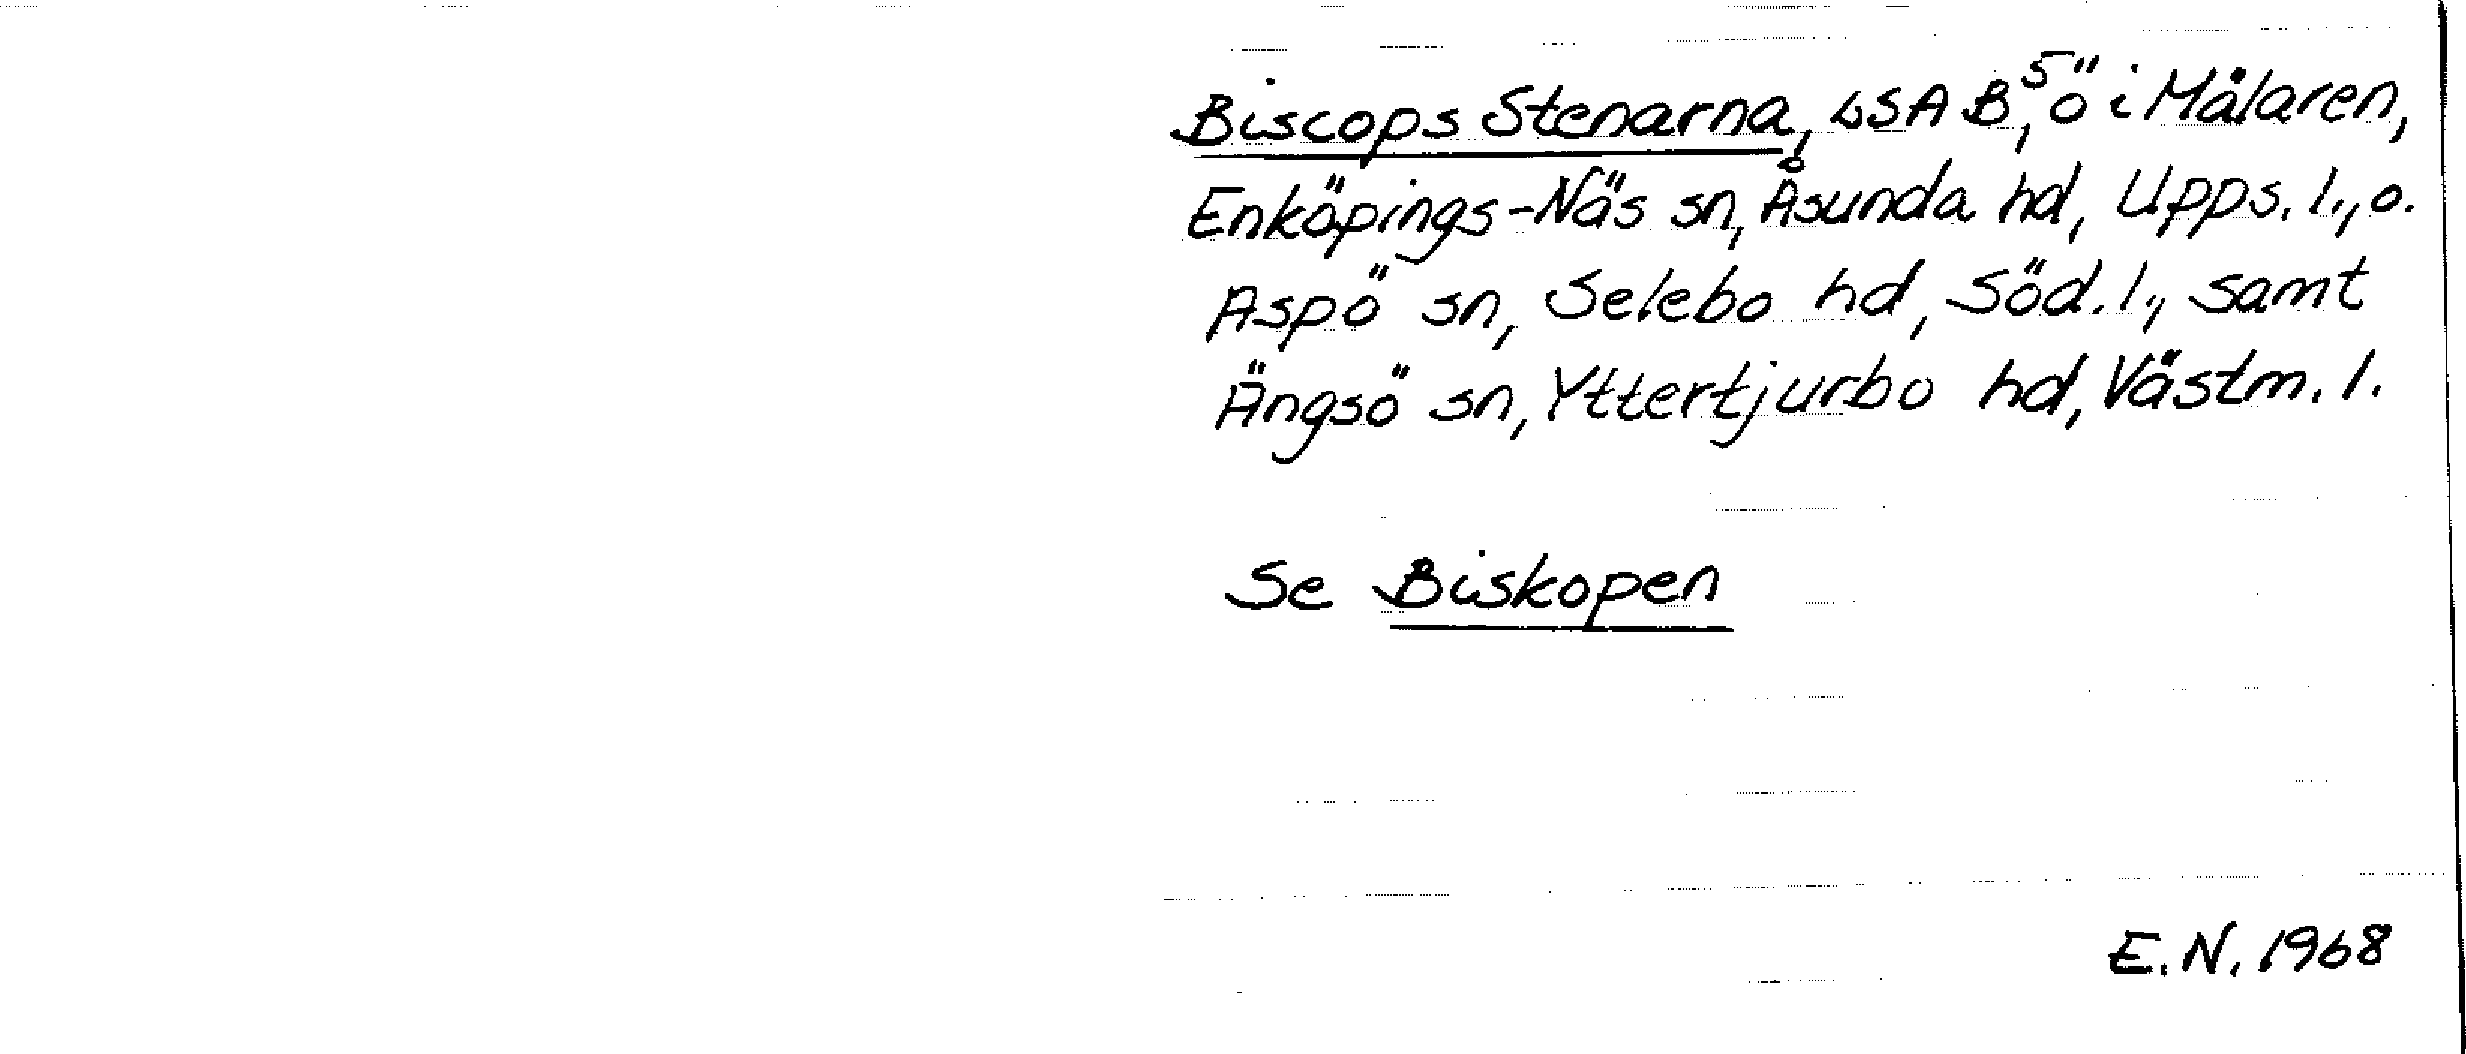 Biscops Stenarna, LSA B⁵, ö i Mälaren,
Enköpings-Näs sn, Åsunda hd, Upps. l., o.
Aspö sn, Selebo hd, Söd. l., samt
Ängsö sn, Yttertjurbo hd, Västm. l.
Se Biskopen
E.N. 1968